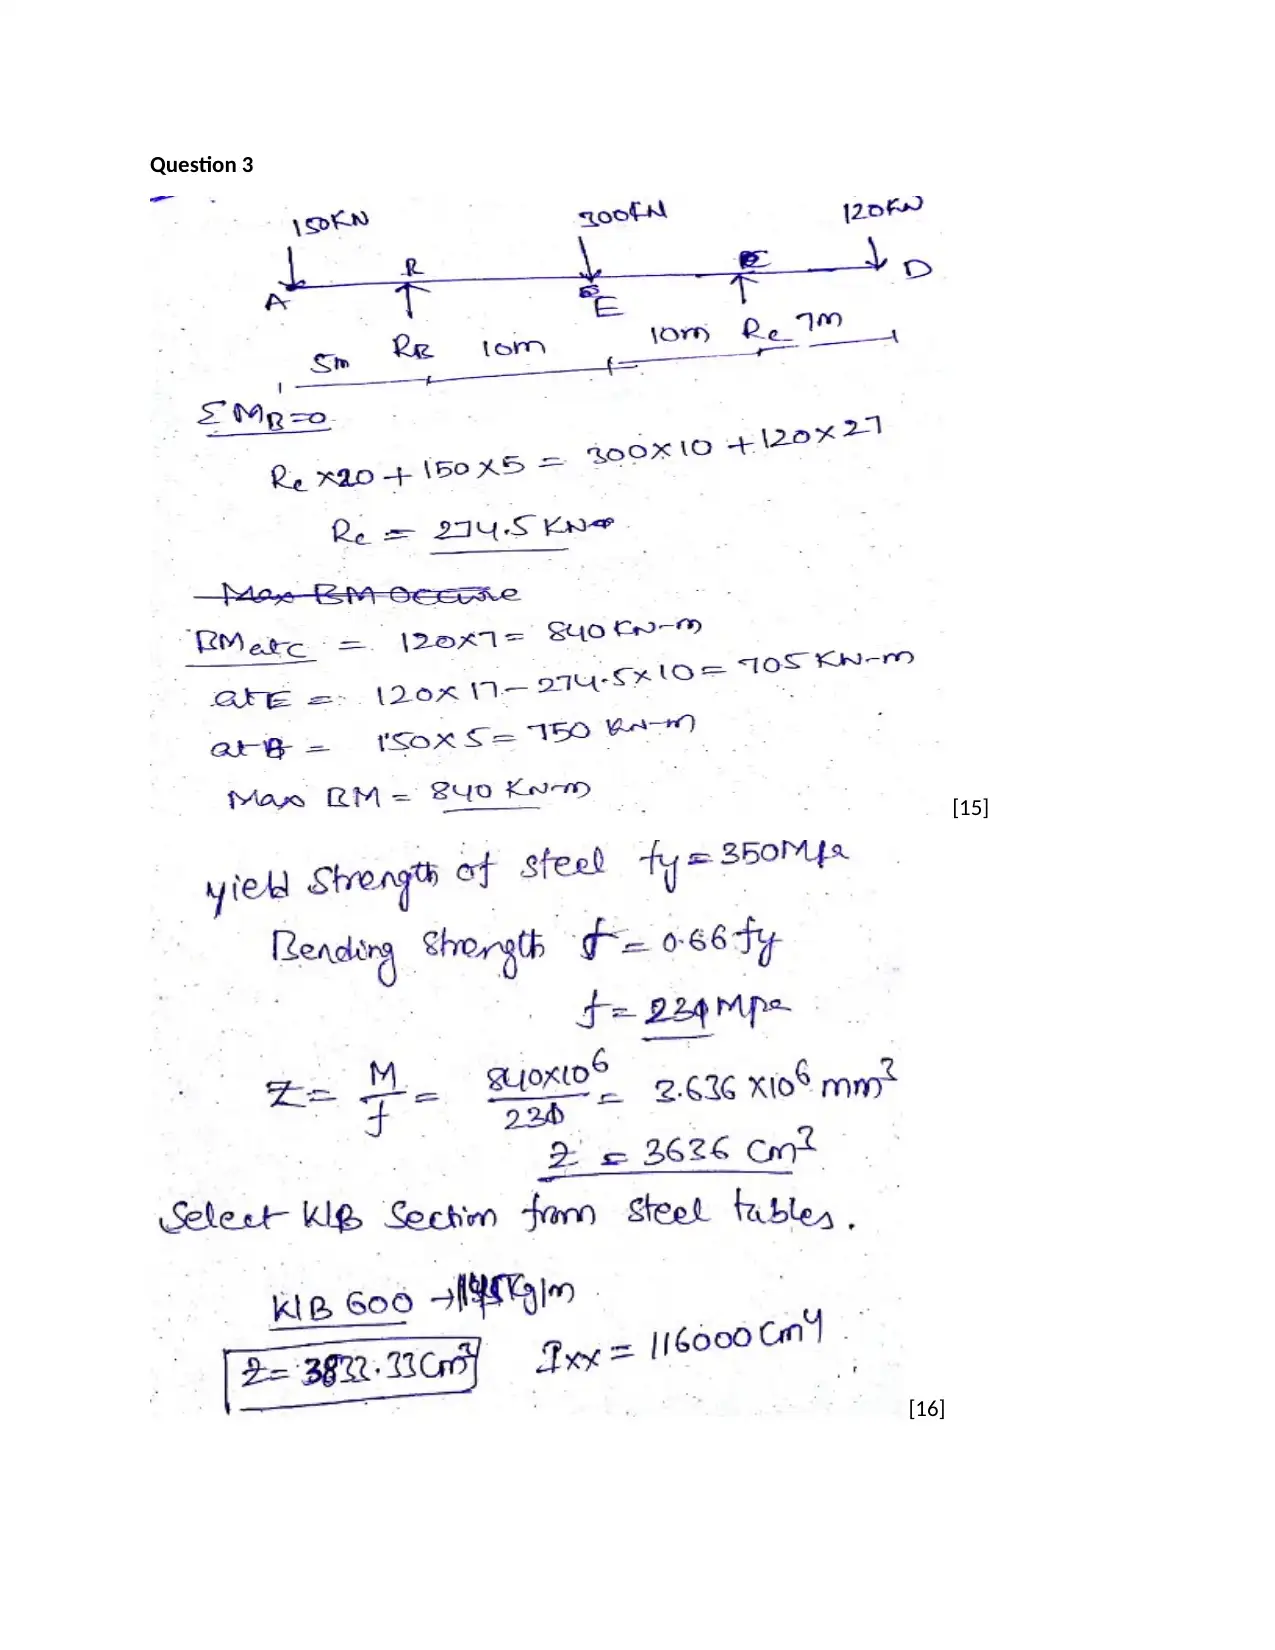 Question 3
150KN 300KN 120KN
B C
A E D
RB Rc
5m 10m 10m 7m
ΣMB=0
Rc×20+150×5 = 300×10+120×27
Rc = 274.5 KN
Max BM Occurre
BM at C = 120×7 = 840 KN-m
at E = 120×17-274.5×10 = 705 KN-m
at B = 150×5 = 750 KN-m
Max BM = 840 KN-m
[15]
yield Strength of steel fy = 350Mpa
Bending Strength f = 0.66 fy
f = 231 Mpa
Z = M/f = 840×10⁶/231 = 3.636 ×10⁶ mm³
Z = 3636 cm³
Select KIB Section from steel tables.
KIB 600 → Kg/m
Z = 3833.33 Cm³ Ixx = 116000 Cm⁴
[16]